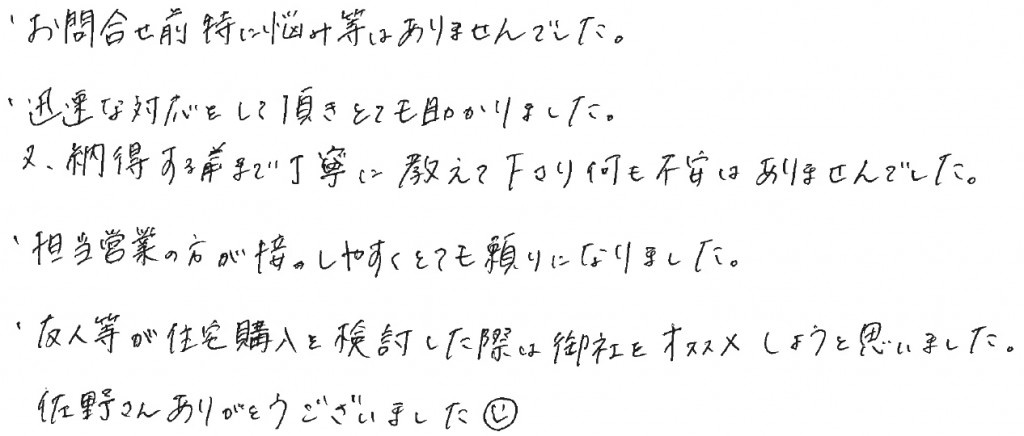 ・お問合せ前特に悩み等はありませんでした。
・迅速な対応をして頂きとても助かりました。
又、納得する前まで丁寧に教えて下さり何も不安はありませんでした。
・担当営業の方が接しやすくとても頼りになりました。
・友人等が住宅購入を検討した際は御社をオススメしようと思いました。
佐野さんありがとうございました☺